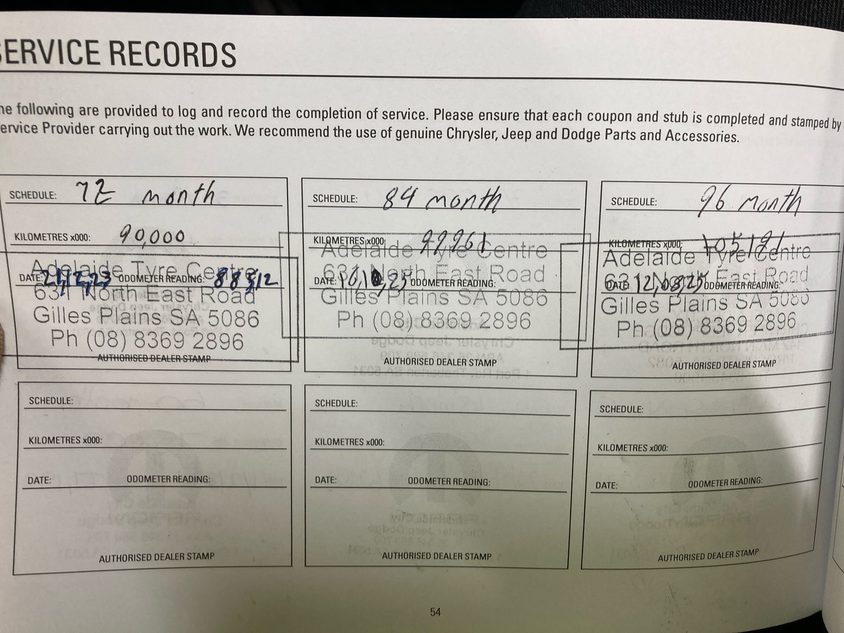 SERVICE RECORDS
The following are provided to log and record the completion of service. Please ensure that each coupon and stub is completed and stamped by
Service Provider carrying out the work. We recommend the use of genuine Chrysler, Jeep and Dodge Parts and Accessories.
SCHEDULE: 72 month
KILOMETRES x000: 90,000
DATE: ODOMETER READING: 88512
Adelaide Tyre Centre
631 North East Road
Gilles Plains SA 5086
Ph (08) 8369 2896
AUTHORISED DEALER STAMP
SCHEDULE: 84 month
KILOMETRES x000:
DATE: ODOMETER READING:
Adelaide Tyre Centre
631 North East Road
Gilles Plains SA 5086
Ph (08) 8369 2896
AUTHORISED DEALER STAMP
SCHEDULE: 96 month
KILOMETRES x000:
DATE: ODOMETER READING:
Adelaide Tyre Centre
631 North East Road
Gilles Plains SA 5086
Ph (08) 8369 2896
AUTHORISED DEALER STAMP
SCHEDULE:
KILOMETRES x000:
DATE: ODOMETER READING:
AUTHORISED DEALER STAMP
SCHEDULE:
KILOMETRES x000:
DATE: ODOMETER READING:
AUTHORISED DEALER STAMP
SCHEDULE:
KILOMETRES x000:
DATE: ODOMETER READING:
AUTHORISED DEALER STAMP
54